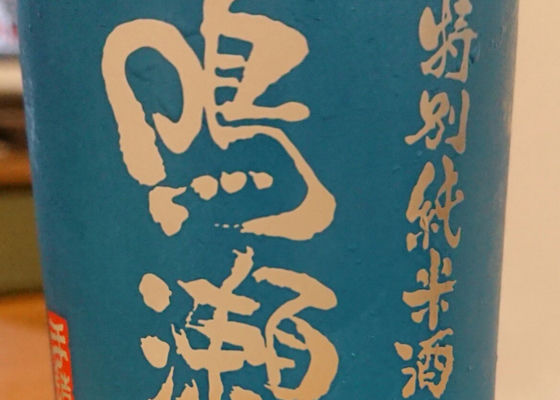 特別純米酒
鳴瀬